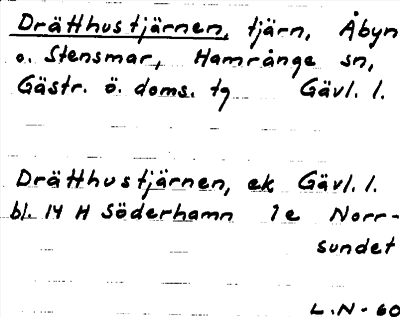 Drätthustjärnen, tjärn, Åbyn
o. Stensmar, Hamrånge sn,
Gästr. ö. doms. tg Gävl. l.
Drätthustjärnen, ek Gävl. l.
bl. 14 H Söderhamn 1e Norr-
sundet
L.N-60